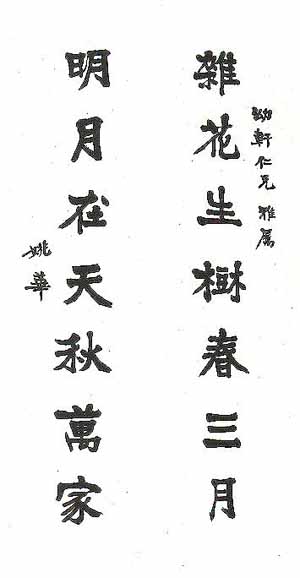 幼軒仁兄雅屬
雜花生樹春三月
明月在天秋萬家
姚華